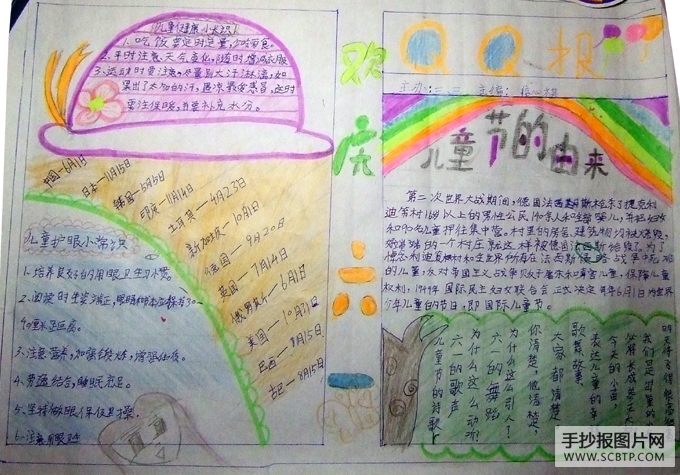 儿童健康小知识
1、吃饭要定时定量，少吃零食。
2、平时注意天气变化，随时增减衣服
3、运动时要注意，尽量别大汗淋漓，如
果出了太多的汗，
要注意保暖，
中国—6月1日
日本—11月15日
韩国—5月5日
印度—11月14日
土耳其—4月23日
新加坡—10月1日
德国—9月20日
英国—7月14日
俄罗斯—6月1日
美国—10月31日
巴西—8月15日
古巴—8月15日
儿童护眼小常识
1、培养良好的用眼卫生习惯。
2、阅读时坐姿端正，眼睛和书本应保持30—
40厘米距离。
3、注意营养，加强锻炼，增强体质。
4、劳逸结合，睡眠充足。
5、坚持做眼保健操。
欢
庆
六
一
QQ报
主办：二、三 主编：
儿童节的由来
第二次世界大战期间，德国法西斯枪杀了捷克利
迪策村16岁以上的男性公民140余人和全部婴儿，并把妇女
和90名儿童押往集中营。村里的房舍、建筑物均被烧毁，
好端端的一个村庄就这样被德国法西斯给毁了。为了
悼念利迪策村和全世界所有在法西斯侵略战争中死难
的儿童，反对帝国主义战争贩子屠杀和毒害儿童，保障儿童
权利，1949年国际民主妇女联合会正式决定每年6月1日为世界
少年儿童的节日，即国际儿童节。
今天的小苗，
表达儿童的
歌舞故事，
大家都清楚
你清楚，他清楚，
为什么这么引人？
六一的舞蹈
为什么这么动听？
六一的歌声
儿童节的诗歌
手抄报图片网
WWW.SCBTP.COM